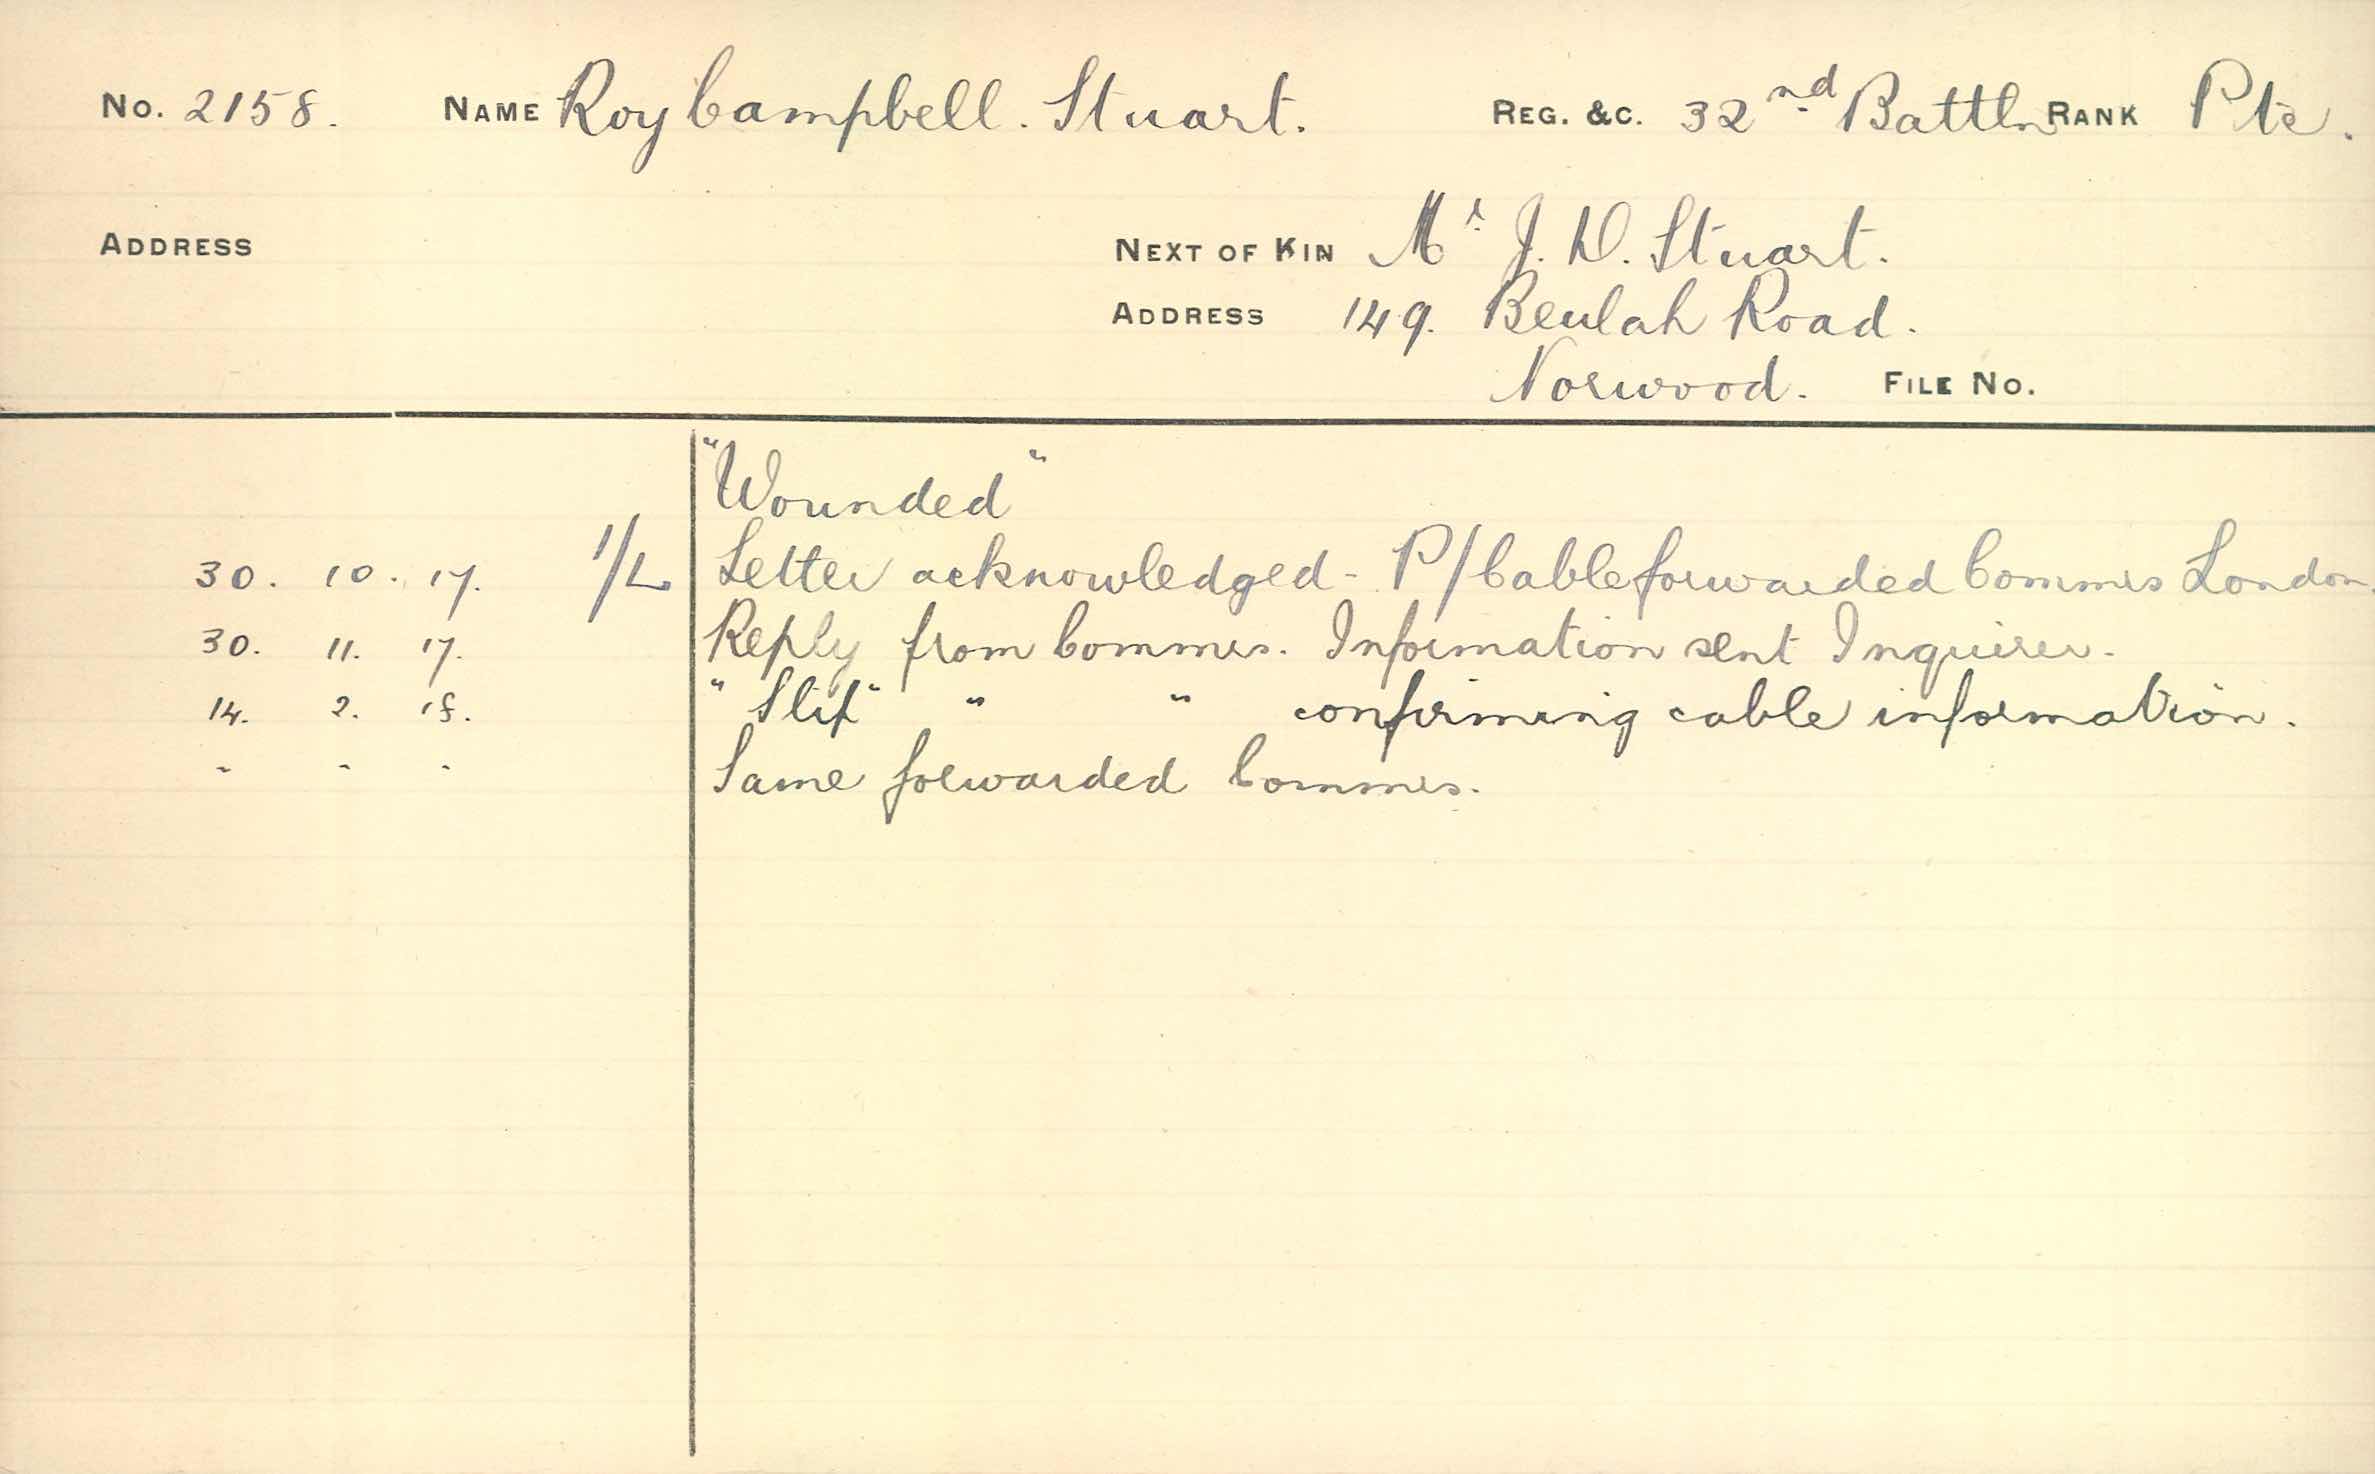 No. 2158. NAME Roy Campbell. Stuart. REG. &C. 32nd Battln RANK Pte.
ADDRESS NEXT OF KIN Mr J. D. Stuart.
ADDRESS 149. Beulah Road.
Norwood. FILE No.
"Wounded"
30. 10. 17. 1/L Letter acknowledged - P/Cable forwarded Commrs London.
30. 11. 17. Reply from Commrs. Information sent Inquirer.
14. 2. 18. " Slip" " " confirming cable information.
" " " Same forwarded Commrs.